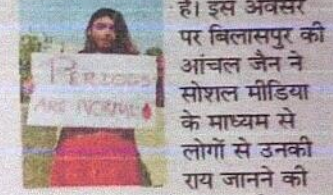 PERIODS
ARE NORMAL
है। इस अवसर
पर बिलासपुर की
आंचल जैन ने
सोशल मीडिया
के माध्यम से
लोगों से उनकी
राय जानने की